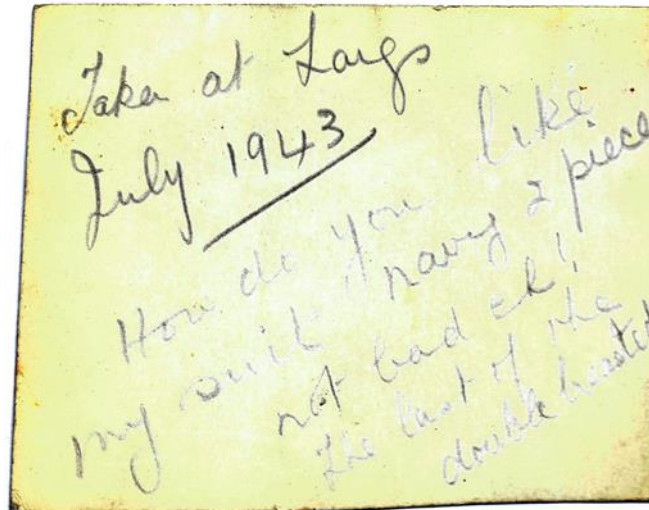 Taken at Largs
July 1943
How do you like
my suit, navy 2 piece
not bad eh!
The last of the
double breasted